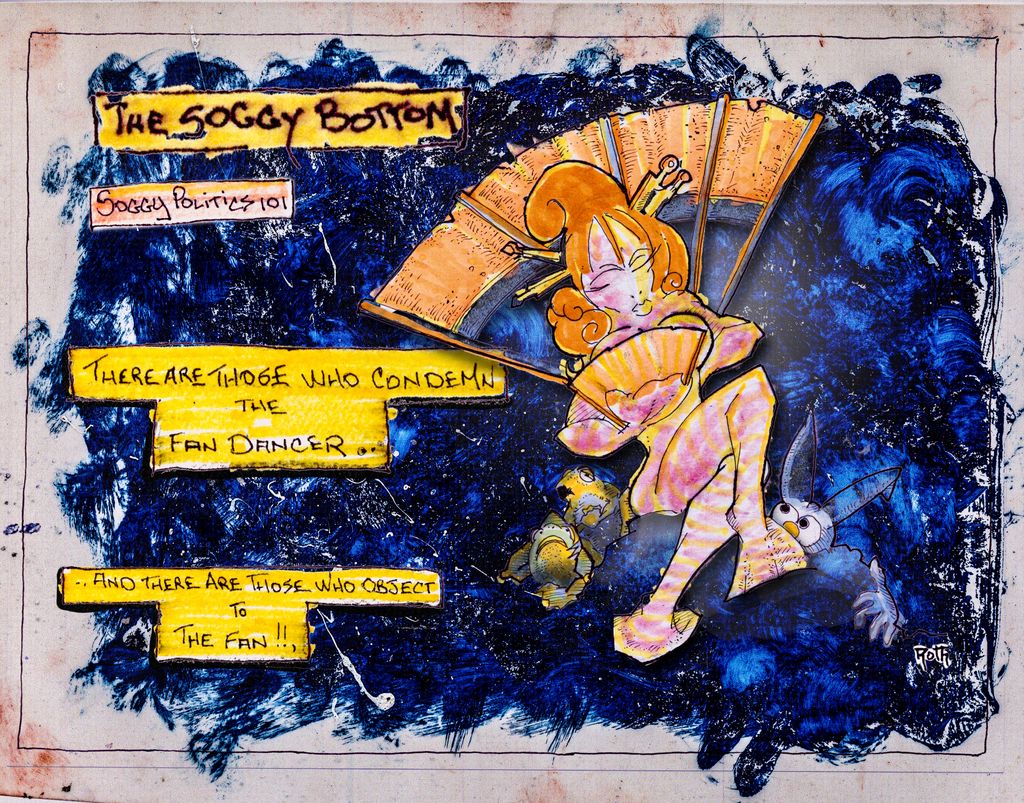 THE SOGGY BOTTOM
SOGGY POLITICS 101
THERE ARE THOSE WHO CONDEMN
THE
FAN DANCER..
..AND THERE ARE THOSE WHO OBJECT
TO
THE FAN!!,